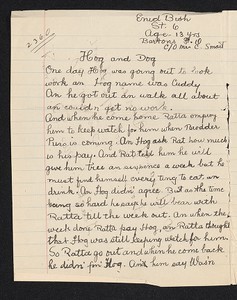 Enid Bish
St. 6
Age 13 yrs
Bartons P.O.
C/O Mr C. Smart
2360
Hog and Dog
One day Hog was going out to look
work an Hog name was Cuddy
An he got out an walk all about
an couldn' get no work.
And when he come home Ratta employ
him to keep watch for him when Bredder
Puss is coming. An Hog ask Rat how much
is his pay. And Rat tell him he will
give him ten an sixpence a week but he
must find himself every ting to eat an
drink. An Hog didn' agree. But as the time
being so hard he says he will bear with
Ratta till the week out. An when the
week done Ratta pay Hog, an Ratta thought
that Hog was still keeping watch for him.
So Ratta go out and when he come back
he didn' fin' Hog. And him say Wa'n